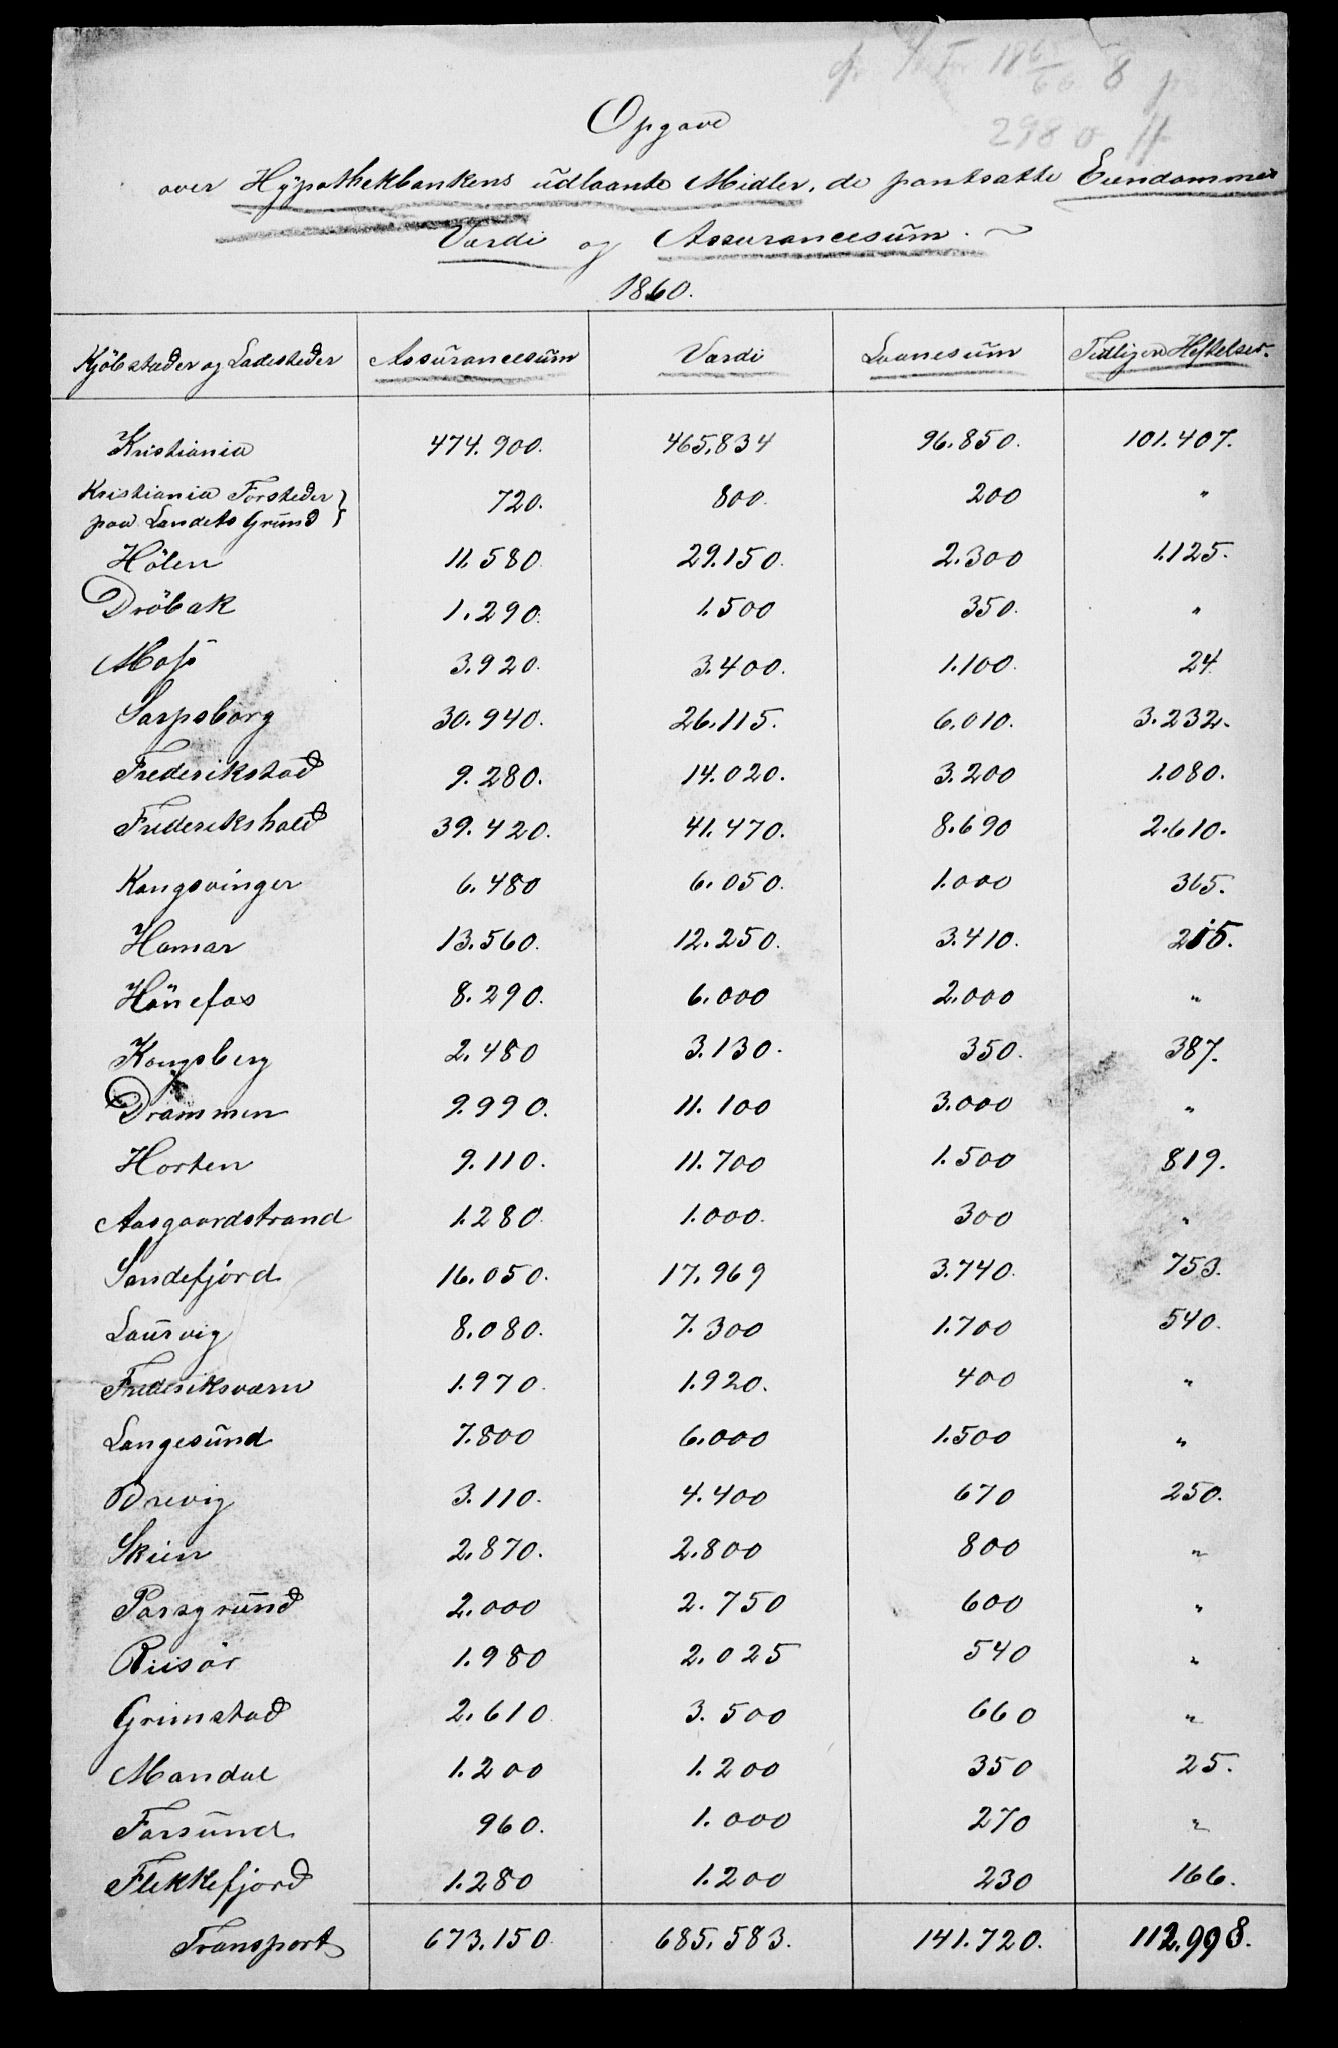 298
Opgave
over Hypothekbankens udlaante Midler, de pantsatte Eiendommes
Værdi og Assurancesum.
1860.
Kjøbstæder og Ladesteder Assurancesum Værdi Laanesum Tidligere Heftelser.
Kristiania 474.900. 465,834 96.850. 101.407.
Kristiania Forsteder } 720. 800. 200 "
paa Landets Grund
Hölen 11.580. 29.150. 2.300 1.125.
Dröbak 1.290. 1.500 350. "
Moss 3.920. 3.400. 1.100. 24
Sarpsborg 30.940. 26.115. 6.010. 3.232.
Frederikstad 9.280. 14.020. 3.200 1.080.
Frederikshald 39.420. 41.470. 8.690 2.610.
Kongsvinger 6.480 6.050. 1.000 365.
Hamar 13.560. 12.250. 3.410. 215.
Hönefos 8.290. 6.000 2.000 "
Kongsberg 2.480 3.130. 350. 387.
Drammen 9.990. 11.100 3.000 "
Horten 9.110. 11.700 1.500 819.
Aasgaardstrand 1.280. 1.000. 300 "
Sandefjörd 16.050. 17.969 3.740. 753.
Laurvig 8.080. 7.300 1.700 540.
Frederiksværn 1.970. 1.920. 400 "
Langesund 7.800 6.000 1.500 "
Brevig 3.110. 4.400 670 250.
Skien 2.870. 2.800 800 "
Porsgrund 2.000 2.750 600 "
Riisör 1.980 2.025 540 "
Grimstad 2.610 3.500 660 "
Mandal 1.200 1.200 350 25.
Farsund 960. 1.000 270 "
Flekkefjord 1.280 1.200 230 166.
Transport 673.150. 685.583. 141.720. 112.998.